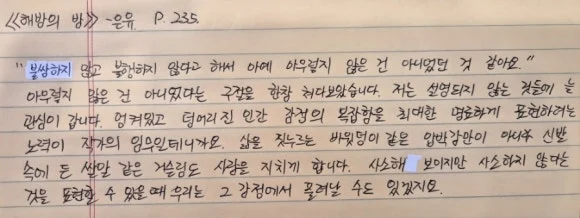 《해방의 밤》 -은유 P. 235.
"불쌍하지 않고 불행하지 않다고 해서 아예 아무렇지 않은 건 아니었던 것 같아요."
아무렇지 않은 건 아니었다는 구절을 한참 쳐다보았습니다. 저는 설명되지 않는 것들에 늘
관심이 갑니다. 엉켜있고 덩어리진 인간 감정의 복잡함을 최대한 명료하게 표현하려는
노력이 작가의 임무일테니까요. 삶을 짓누르는 바윗덩이같은 압박감만이 아니라 신발
속에 든 쌀알 같은 거슬림도 사람을 지치게 합니다. 사소해 보이지만 사소하지 않다는
것을 표현할 수 있을 때 우리는 그 감정에서 풀려날 수도 있겠지요.